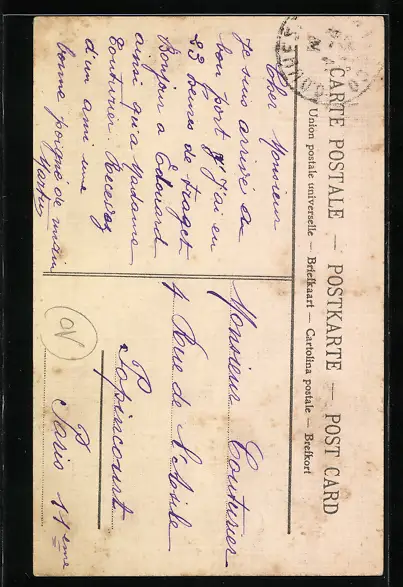 CARTE POSTALE — POSTKARTE — POST CARD
Union postale universelle — Briefkaart — Cartolina postale — Brefkort
Cher Monsieur
Je suis arrivé au
bon port J'ai eu
23 heures de trajet
Bonjour a Edouard
ainsi qu'a Madame
Couturier. Recevez
d'un ami une
bonne poigne de main
Martin
Monsieur Couturier
Rue de
Popincourt
Paris 11eme